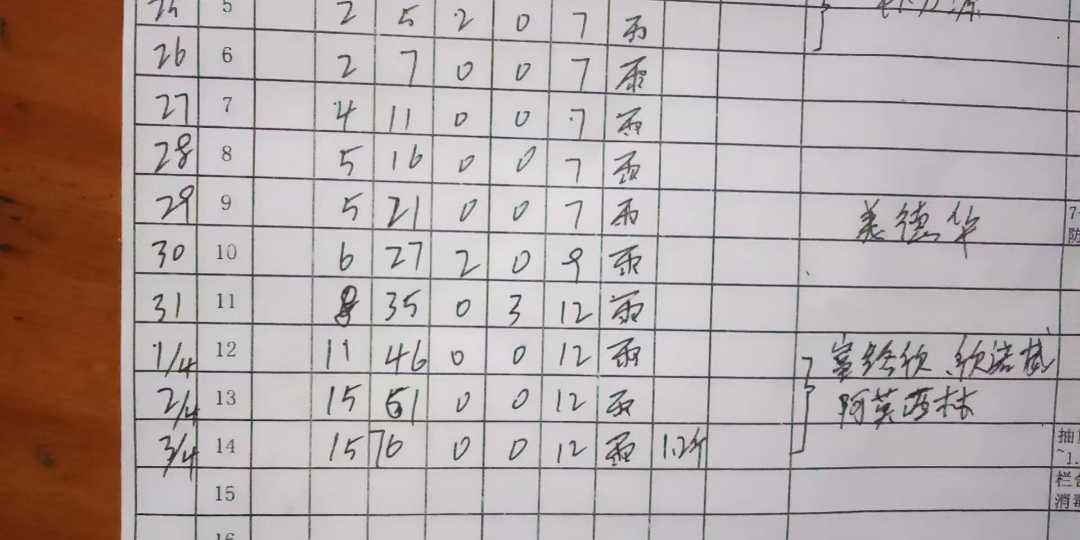 25 5 2 5 2 0 7 雨
26 6 2 7 0 0 7 雨
27 7 4 11 0 0 7 雨
28 8 5 16 0 0 7 雨
29 9 5 21 0 0 7 雨
30 10 6 27 2 0 9 雨
31 11 8 35 0 3 12 雨
1/4 12 11 46 0 0 12 雨
2/4 13 15 61 0 0 12 雨
3/4 14 15 76 0 0 12 雨 1.2斤
15
16
德华
阿莫西林
7
防
抽
~1.
栏舍
消毒